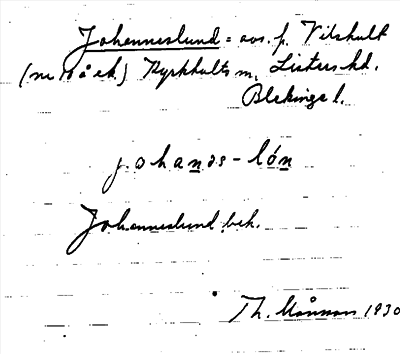 Johanneslund = avs. p. Vilshult
(nr 10 å ek.) Kyrkhults sn, Listers hd.
Blekinge l.
johanəs-lón
Johanneslund bek.
Th. Månsson 1930